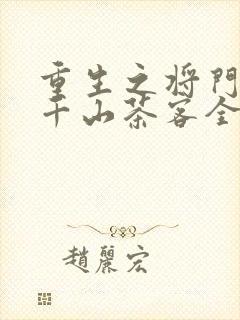 重生之将门
千山茶客全
趙麗宏